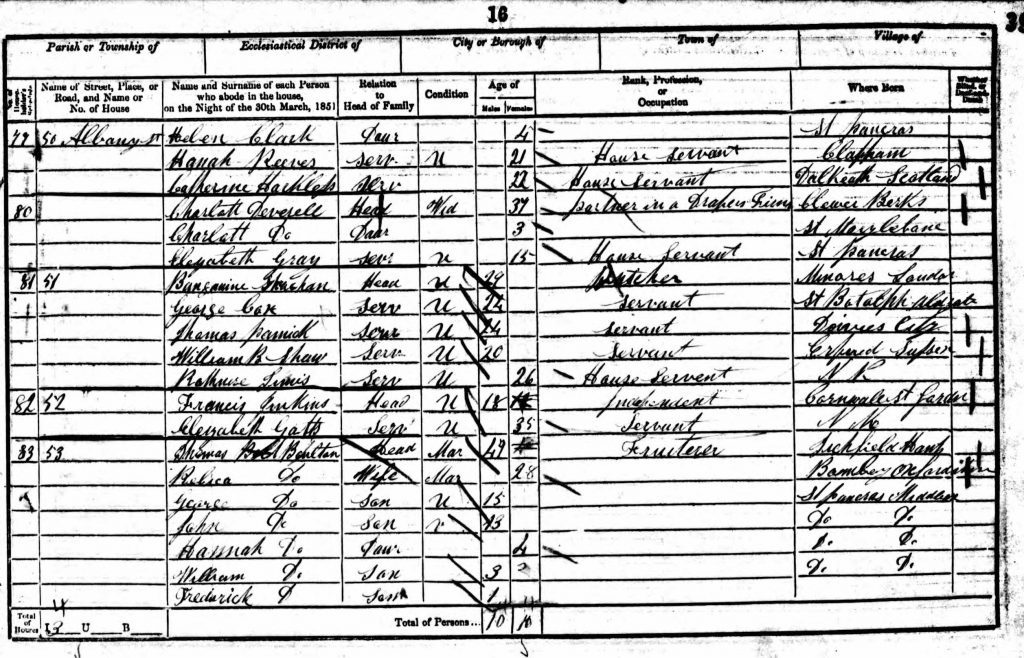 16
Parish or Township of Ecclesiastical District of City or Borough of Town of Village of
Name of Street, Place, or Road, and Name or No. of House Name and Surname of each Person who abode in the house, on the Night of the 30th March, 1851 Relation to Head of Family Condition Age of Males Females Rank, Profession, or Occupation Where Born
79 50 Albany St Helen Clark Daur 4 St Pancras
Hanah Reeves Serv U 21 House Servant Clapham
Catherine Serv 22 House Servant Dalkeath Scotland
80 Charlatt Deverell Head Wid 37 partner in a Drapers Clewer Berks
Charlatt Do Daur 3 St Marylebane
Elizabeth Gray Serv U 15 House Servant St Pancras
81 51 Head U 29 Butcher Minores London
George Cox Serv U 22 Servant St Botolph Aldgate
Thomas Serv U 24 Servant
William B Shaw Serv U 20 Servant
Serv U 26 House Servent N K
82 52 Francis Jinkins Head U 18 Independent
Elizabeth Serv U 35 Servant N K
83 53 Thomas Boulton Head Mar 49 Fruiterer
Do Wife Mar 28
George Do Son U 15 St Pancras Middlesex
John Do Son 13 Do Do
Hannah Do Daur 4 Do Do
William Do Son 3 Do Do
Frederick D Son 1
Total of Houses I 4 U B Total of Persons... 10 10